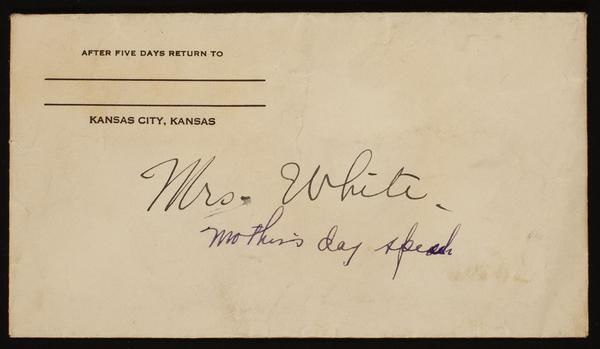 AFTER FIVE DAYS RETURN TO
KANSAS CITY, KANSAS
Mrs. White.
Mother's day speech